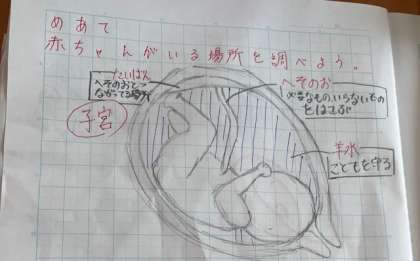 めあて
赤ちゃんがいる場所を調べよう。
たいばん
へそのおとつ
ながってる場所
へそのお
必要なものいらないもの
をはこぶ
子宮
羊水
こどもを守る